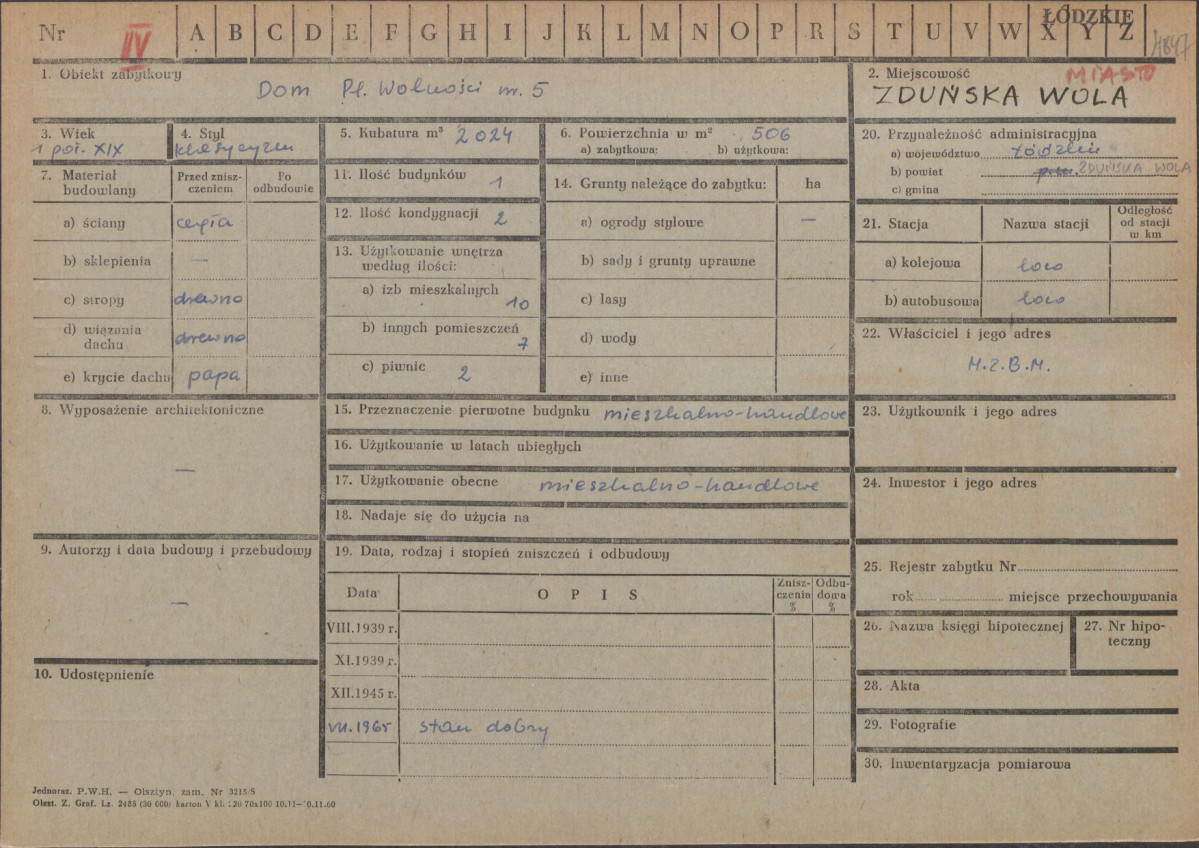 Nr IV A B C D E F G H I J K L M N O P R S T U V W X Y Z
ŁÓDZKIE
4847
1. Obiekt zabytkowy
Dom Pl. Wolności nr. 5
2. Miejscowość
MIASTO
ZDUŃSKA WOLA
3. Wiek
1 poł. XIX
4. Styl
klasycyzm
5. Kubatura m³ 2024
6. Powierzchnia w m² 506
a) zabytkowa: b) użytkowa:
7. Materiał budowlany
Przed znisz-
czeniem
Po
odbudowie
a) ściany cegła
b) sklepienia —
c) stropy drewno
d) wiązania
dachu drewno
e) krycie dachu papa
8. Wyposażenie architektoniczne
—
9. Autorzy i data budowy i przebudowy
—
10. Udostępnienie
11. Ilość budynków 1
12. Ilość kondygnacji 2
13. Użytkowanie wnętrza
według ilości:
a) izb mieszkalnych
10
b) innych pomieszczeń
7
c) piwnic 2
14. Grunty należące do zabytku: ha
a) ogrody stylowe —
b) sady i grunty uprawne
c) lasy
d) wody
e) inne
15. Przeznaczenie pierwotne budynku mieszkalno-handlowe
16. Użytkowanie w latach ubiegłych
17. Użytkowanie obecne mieszkalno-handlowe
18. Nadaje się do użycia na
19. Data, rodzaj i stopień zniszczeń i odbudowy
Data
OPIS
Znisz-
czenia
%
Odbu-
dowa
%
VIII.1939 r.
XI.1939 r.
XII.1945 r.
VII.1965 stan dobry
20. Przynależność administracyjna
a) województwo Łódzkie
b) powiat ZDUŃSKA WOLA
c) gmina
21. Stacja
Nazwa stacji
Odległość
od stacji
w km
a) kolejowa loco
b) autobusowa loco
22. Właściciel i jego adres
M.Z.B.M.
23. Użytkownik i jego adres
24. Inwestor i jego adres
25. Rejestr zabytku Nr
rok miejsce przechowywania
26. Nazwa księgi hipotecznej
27. Nr hipo-
teczny
28. Akta
29. Fotografie
30. Inwentaryzacja pomiarowa
Jednoraz. P.W.H. — Olsztyn. zam. Nr 3215/S
Olszt. Z. Graf. Lz. 2485 (30 000) karton V kl. 120 70x100 10.11—10.11.60